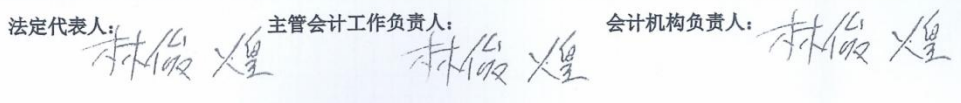 法定代表人:林俊煌 主管会计工作负责人:林俊煌 会计机构负责人:林俊煌